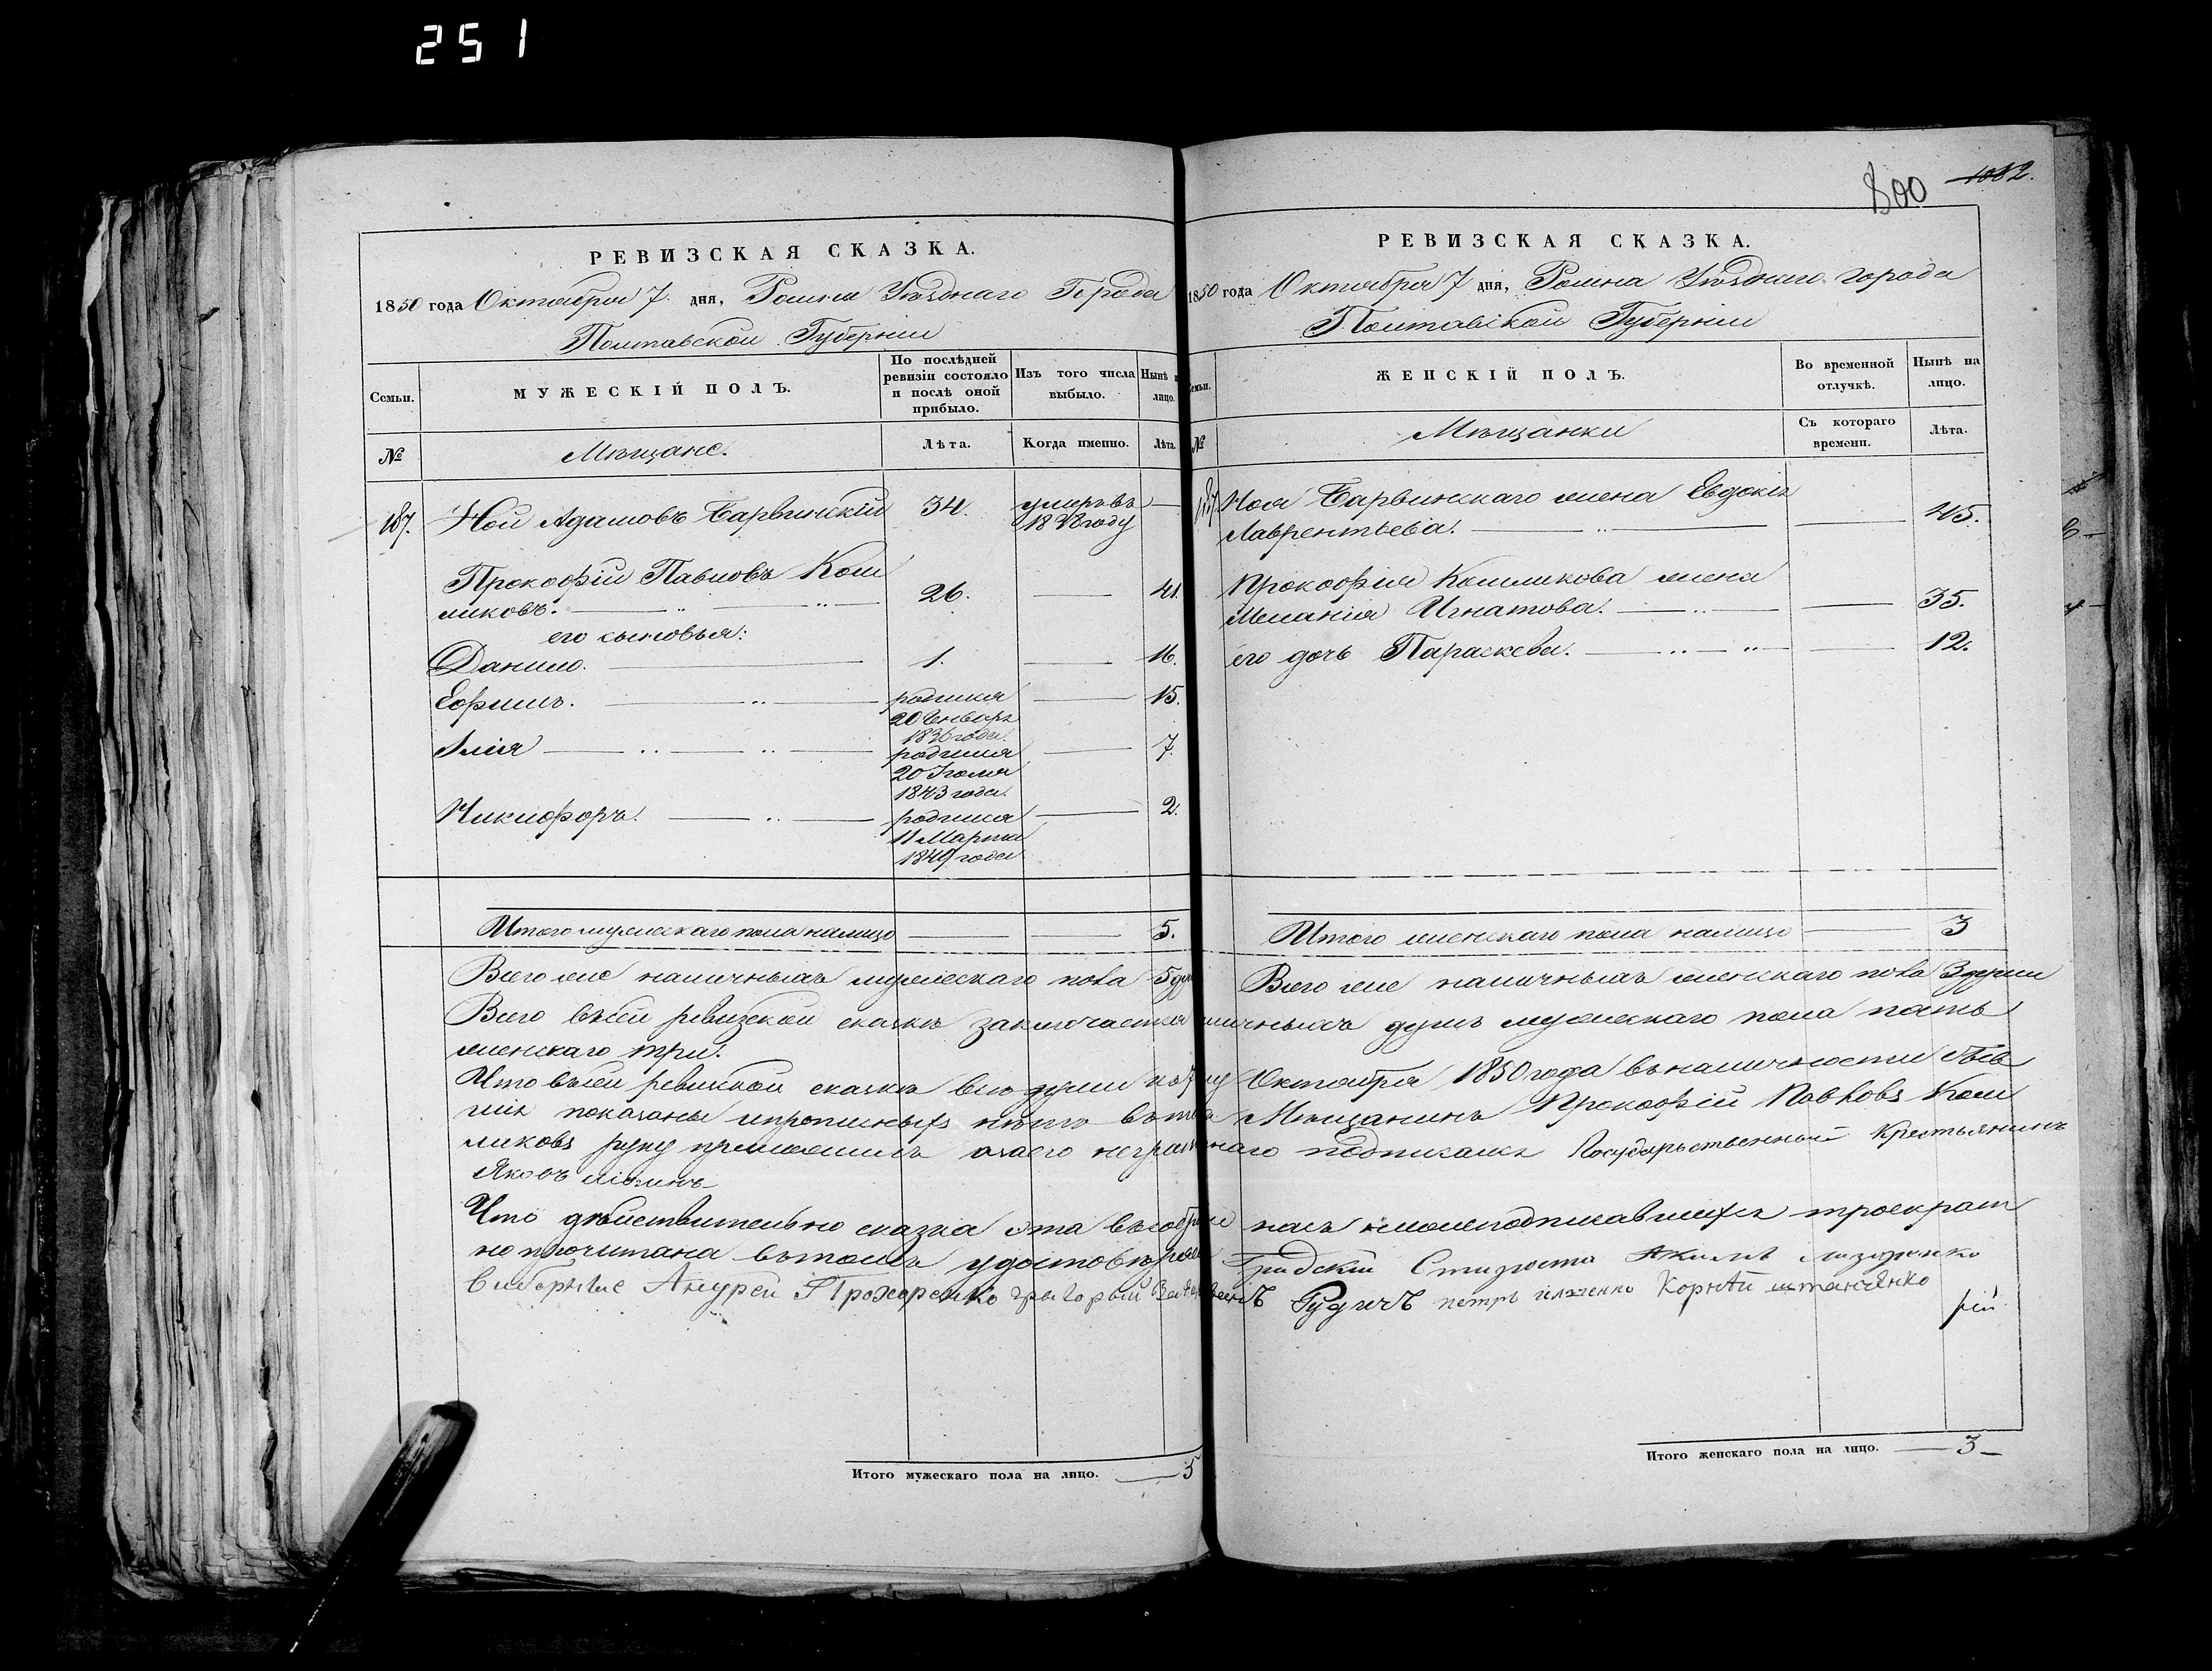 251
800 1082.
РЕВИЗСКАЯ СКАЗКА.
1850 года Октября 7 дня, Ромна Уѣзднаго Города
Полтавской Губерніи
Семьи.
МУЖЕСКІЙ ПОЛЪ.
По послѣдней ревизіи состояло и послѣ оной прибыло.
Изъ того числа выбыло.
Нынѣ лицо.
№
Мѣщане.
Лѣта.
Когда именно.
Лѣта.
187. Ной Адамовъ Барвинскій 34. умеръ въ —
18 году
Прокофій Павловъ Кош
ликовъ. 26. — 41.
его сыновья:
Данило. 1. — 16.
Ефимъ. родился — 15.
20 Генваря
1836 года.
Илія родился — 7.
20 Іюля
1843 года.
Никифоръ. родился — 2.
11 Марта
1849 года
Итого мужескаго пола налицо — — 5.
РЕВИЗСКАЯ СКАЗКА.
1850 года Октября 7 дня, Ромна Уѣзднаго города
Полтавской Губерніи
Семьи.
ЖЕНСКІЙ ПОЛЪ.
Во временной отлучкѣ.
Нынѣ на лицо.
№
Мѣщанки
Съ котораго времени.
Лѣта.
187 Ноя Барвинскаго жена Евдокія
Лаврентьева. — 45.
Прокофія Кошликова жена
Меланія Игнатова. — 35.
его дочь Параскева. — 12.
Итого женскаго пола налицо — 3
Всего же наличныхъ мужескаго пола 5 душ
Всего же наличныхъ женскаго пола 3 души
Всего въ сей ревизской сказкѣ заключается наличныхъ душъ мужескаго пола пять
женскаго три.
Что въ сей ревизской сказкѣ всѣ души по 7е Октября 1850 года въ наличности быв
шія показаны и прописныхъ нѣтъ въ томъ Мѣщанинъ Прокофій Павловъ Кош
ликовъ руку приложилъ а за его неграмотнаго подписался Государственный Крестьянинъ
Яковъ
Что дѣйствительно сказка эта въ собраніи насъ нижеподписавшихся троекрат
но прочитана въ томъ удостовѣряемъ Градскій Староста Акимъ Лазаренко
Виборные Андрей Прохоренко Григорый Рудичъ петръ Корнѣй
рій
Итого мужескаго пола на лицо. — 5
Итого женскаго пола на лицо. — 3 —